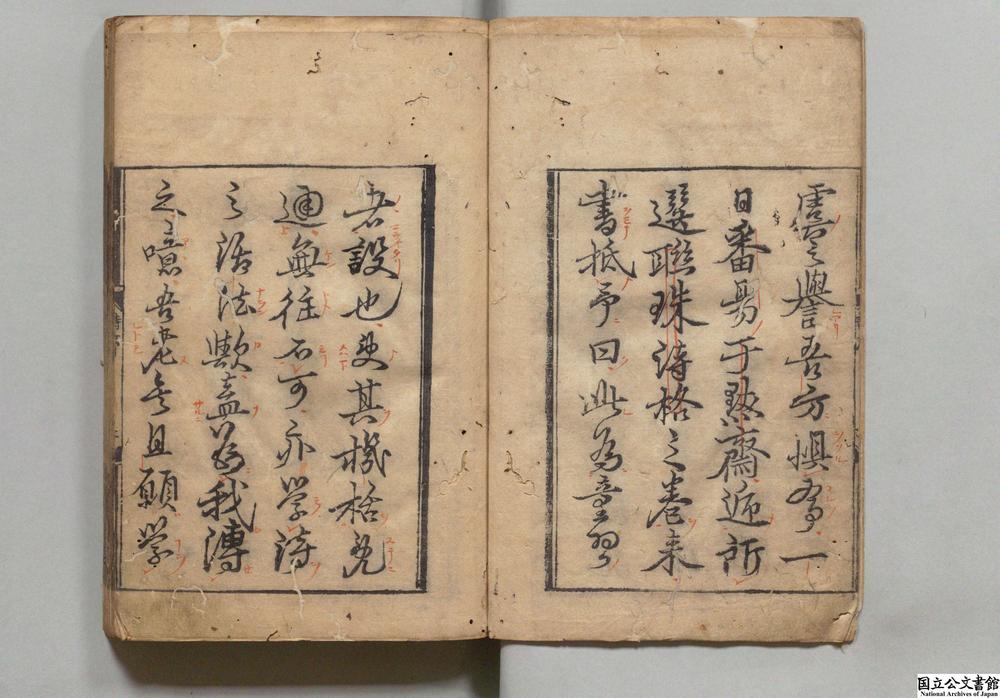 虗之譽吾方惧焉一
日番昜于默齋逓所
選聯珠詩格之卷来
書抵予曰此為童習
者設也使其機括既
通無往不可亦学詩
之活法歟盍為我傳
之噫吾老矣且願学
国立公文書館
National Archives of Japan